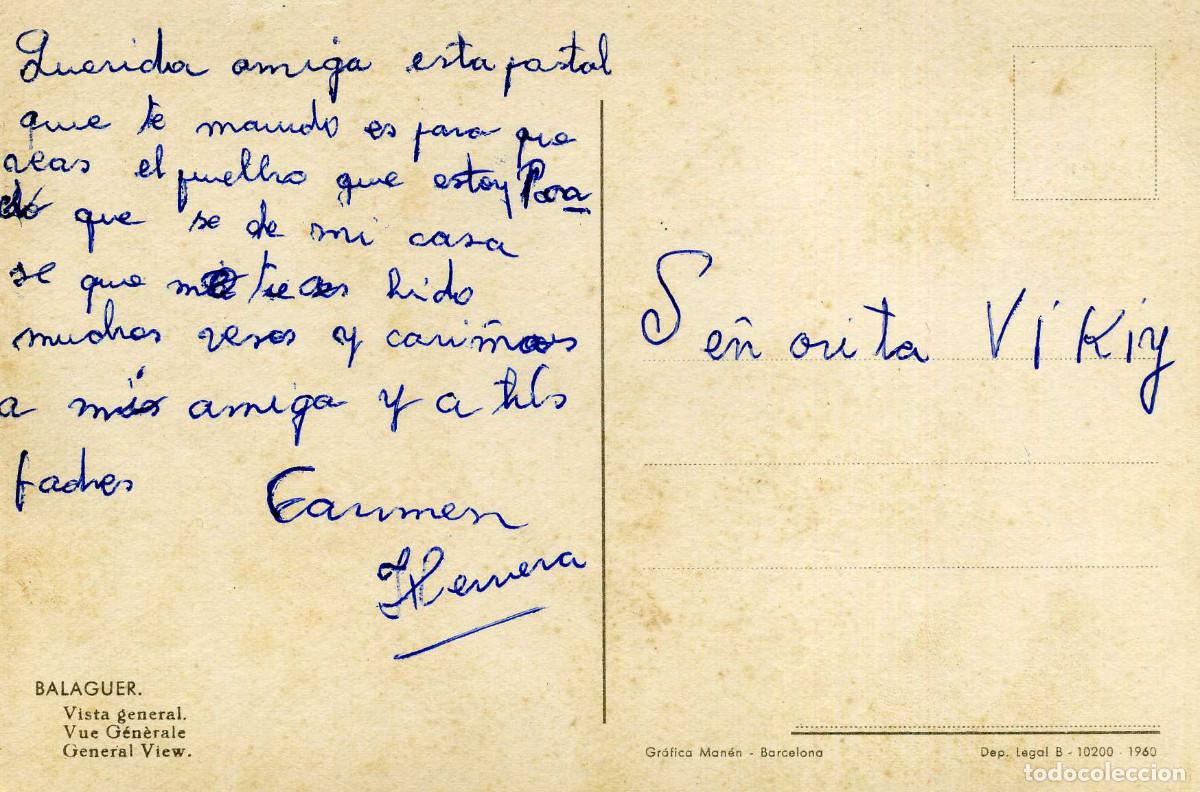 Querida amiga esta postal
que te mando es para que
veas el puelho que estoy Para
do que se de mi casa
se que me hido
muchos vesos y cariños
a mis amiga y a this
padres
Carmen
Herrera
BALAGUER.
Vista general.
Vue Génèrale
General View.
Señorita Vikiy
Gráfica Manén - Barcelona
Dep. Legal B - 10200 - 1960
todocoleccion